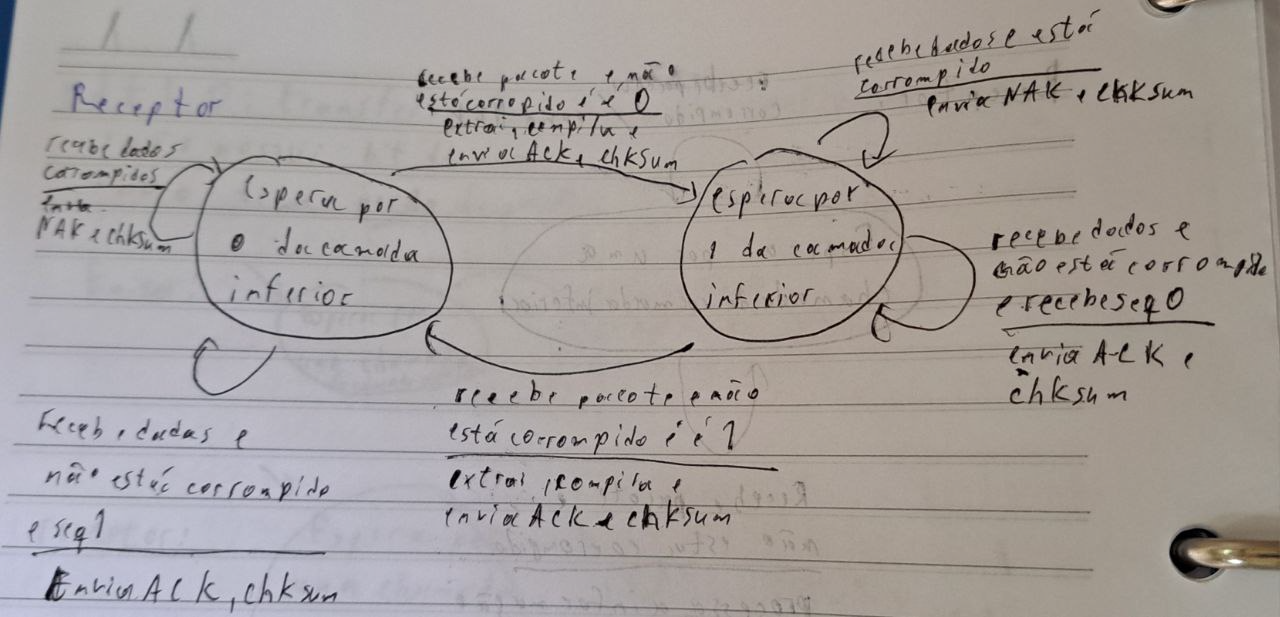 Receptor
recebe dados
corrompidos
NAK e chksum
recebe pacote e não
está corropido é e 0
extrai, compila e
envia ACK, chksum
recebe dados e está
corrompido
envia NAK e chksum
espera por
0 da camada
inferior
espera por
1 da camada
inferior
recebe dados e
não está corrompido
e recebe seq 0
envia ACK e
chksum
recebe pacote e não
está corrompido é é 1
extrai, compila e
envia ACK e chksum
recebe dados e
não está corrompido
e seq 1
Envia ACK, chksum